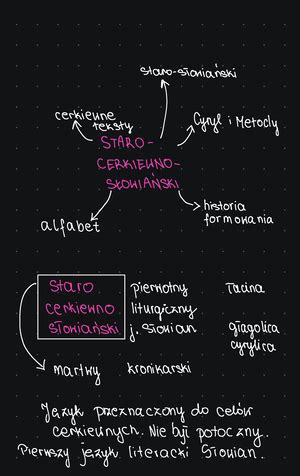 staro-słowiański
cerkiewne
teksty
Cyryl i Metody
STARO-
CERKIEWNO-
SŁOWIAŃSKI
historia
formowania
alfabet
staro pierwotny łacina
cerkiewno liturgiczny
słowiański j. słowian głagolica
cyrylica
martwy kronikarski
Język przeznaczony do celów
cerkiewnych. Nie był potoczny.
Pierwszy język literacki Słowian.